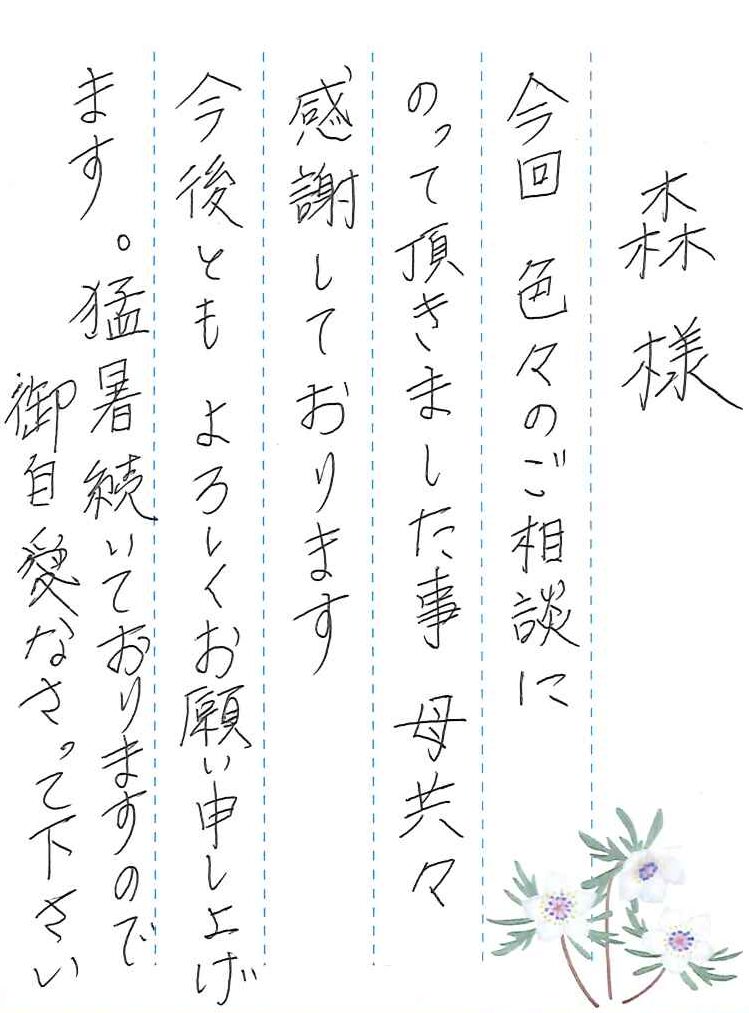 森様
今回 色々のご相談に
のって頂きました事 母共々
感謝しております
今後とも よろしくお願い申し上げ
ます。猛暑続いておりますので
御自愛なさって下さい